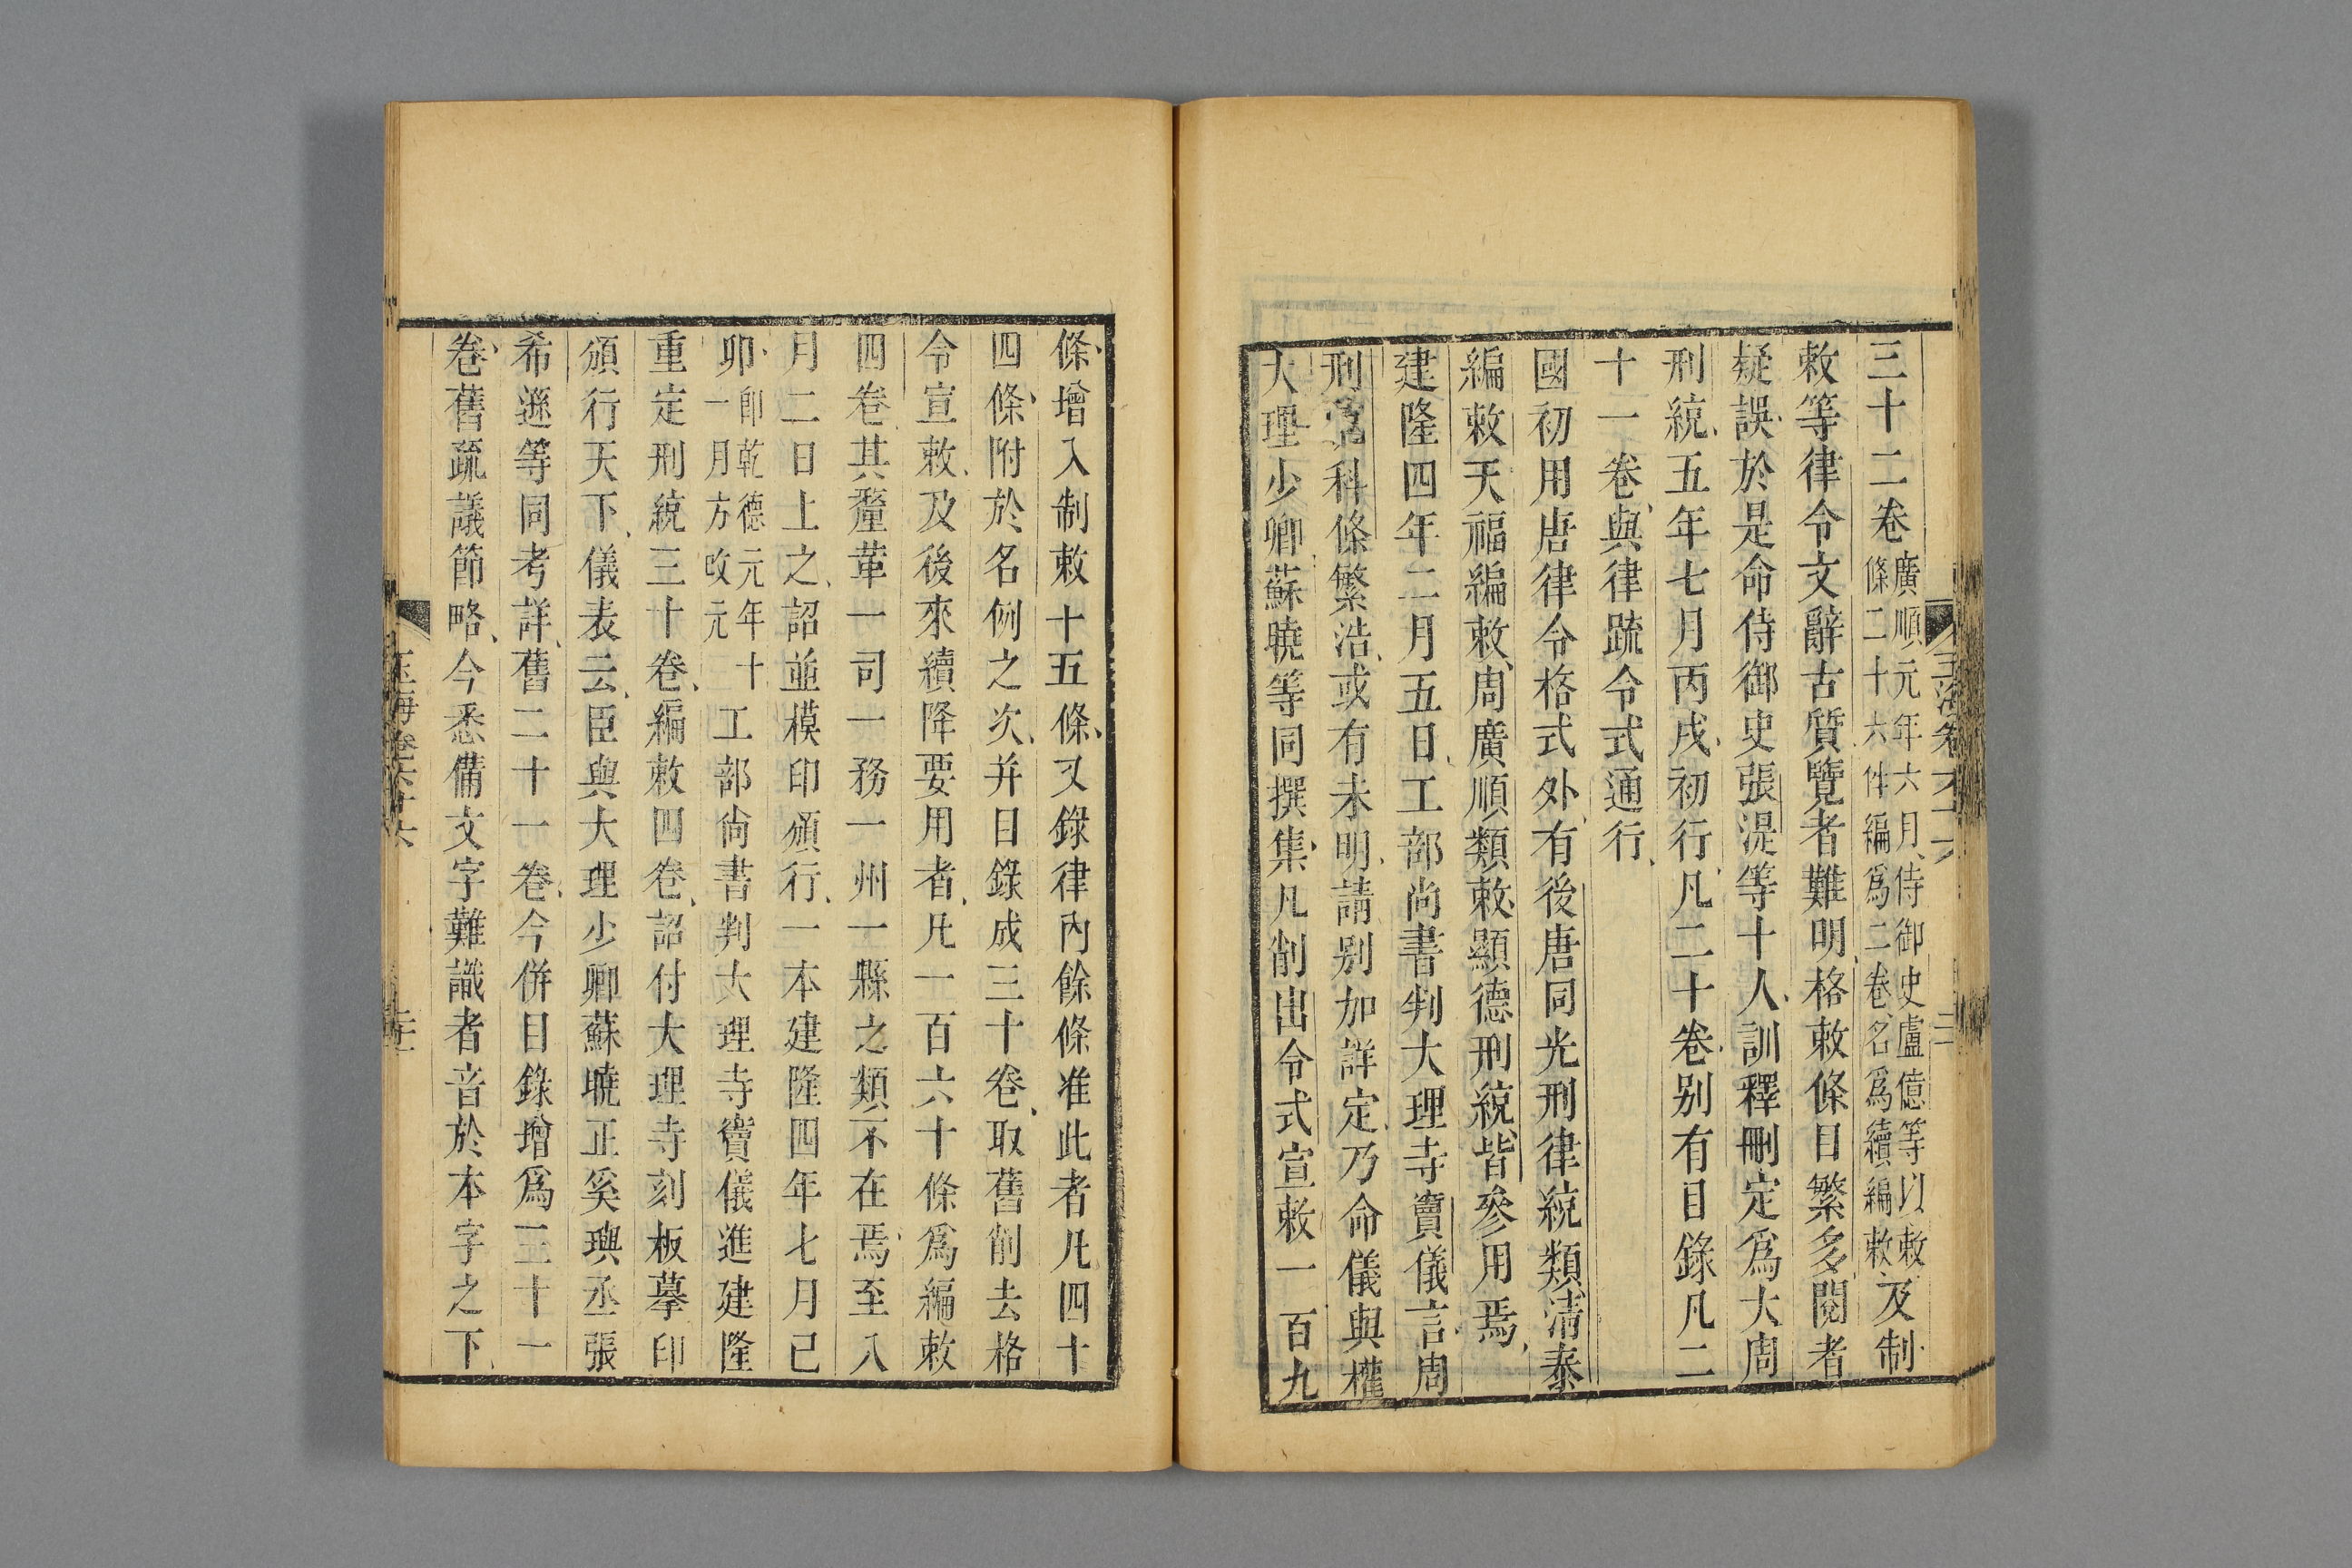 三十二卷廣順元年六月侍御史盧億等以敕條二十六件編爲二卷名爲續編敕及制
敕等律令文辭古質覽者難明格敕條目繁多閱者
疑誤於是命侍御史張湜等十人訓釋刪定爲大周
刑統五年七月丙戌初行凡二十卷别有目錄凡二
十一卷與律疏令式通行
國初用唐律令格式外有後唐同光刑律統類清泰
編敕天福編敕周廣順類敕顯德刑統皆參用焉
建隆四年二月五日工部尚書判大理寺竇儀言周
刑統科條繁浩或有未明請别加詳定乃命儀與權
大理少卿蘇曉等同撰集凡削出令式宣敕一百九
條增入制敕十五條又錄律內餘條准此者凡四十
四條附於名例之次并目錄成三十卷取舊削去格
令宣敕及後來續降要用者凡一百六十條爲編敕
四卷其釐革一司一務一州一縣之類不在焉至八
月二日上之詔並模印頒行一本建隆四年七月己
卯卽乾德元年十一月方改元工部尚書判大理寺竇儀進建隆
重定刑統三十卷編敕四卷詔付大理寺刻板摹印
頒行天下儀表云臣與大理少卿蘇曉正奚璵丞張
希遜等同考詳舊二十一卷今併目錄增爲三十一
卷舊疏議節略今悉備文字難識者音於本字之下
玉海卷六十六